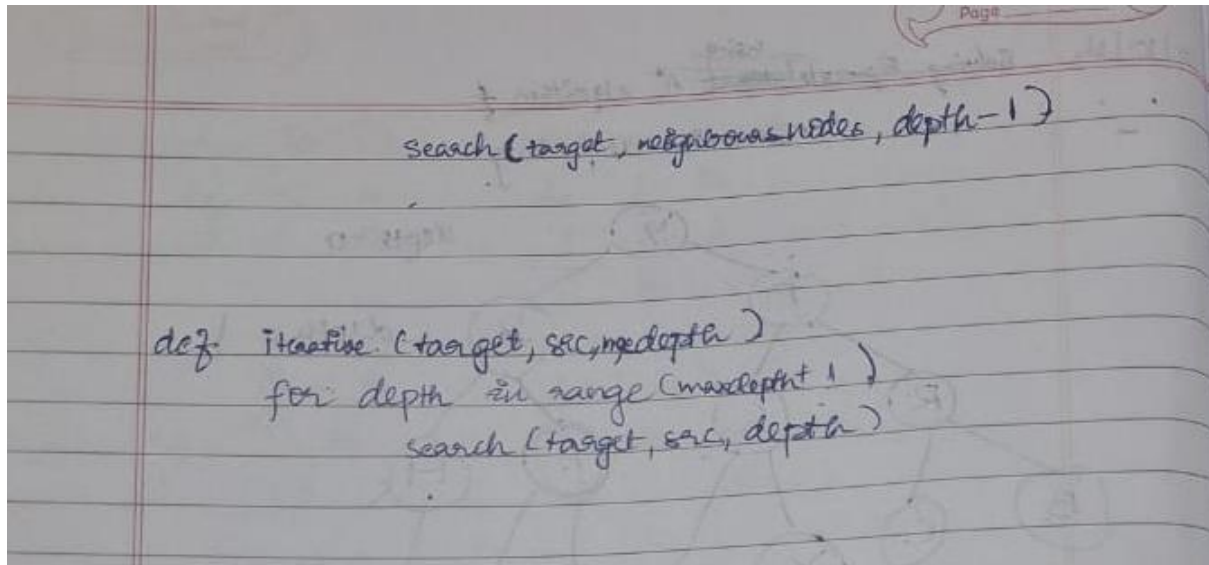 Page
search (target, neighbours nodes, depth-1)
def iterative (target, src, maxdepth)
for depth in range (maxdepth + 1)
search (target, src, depth)